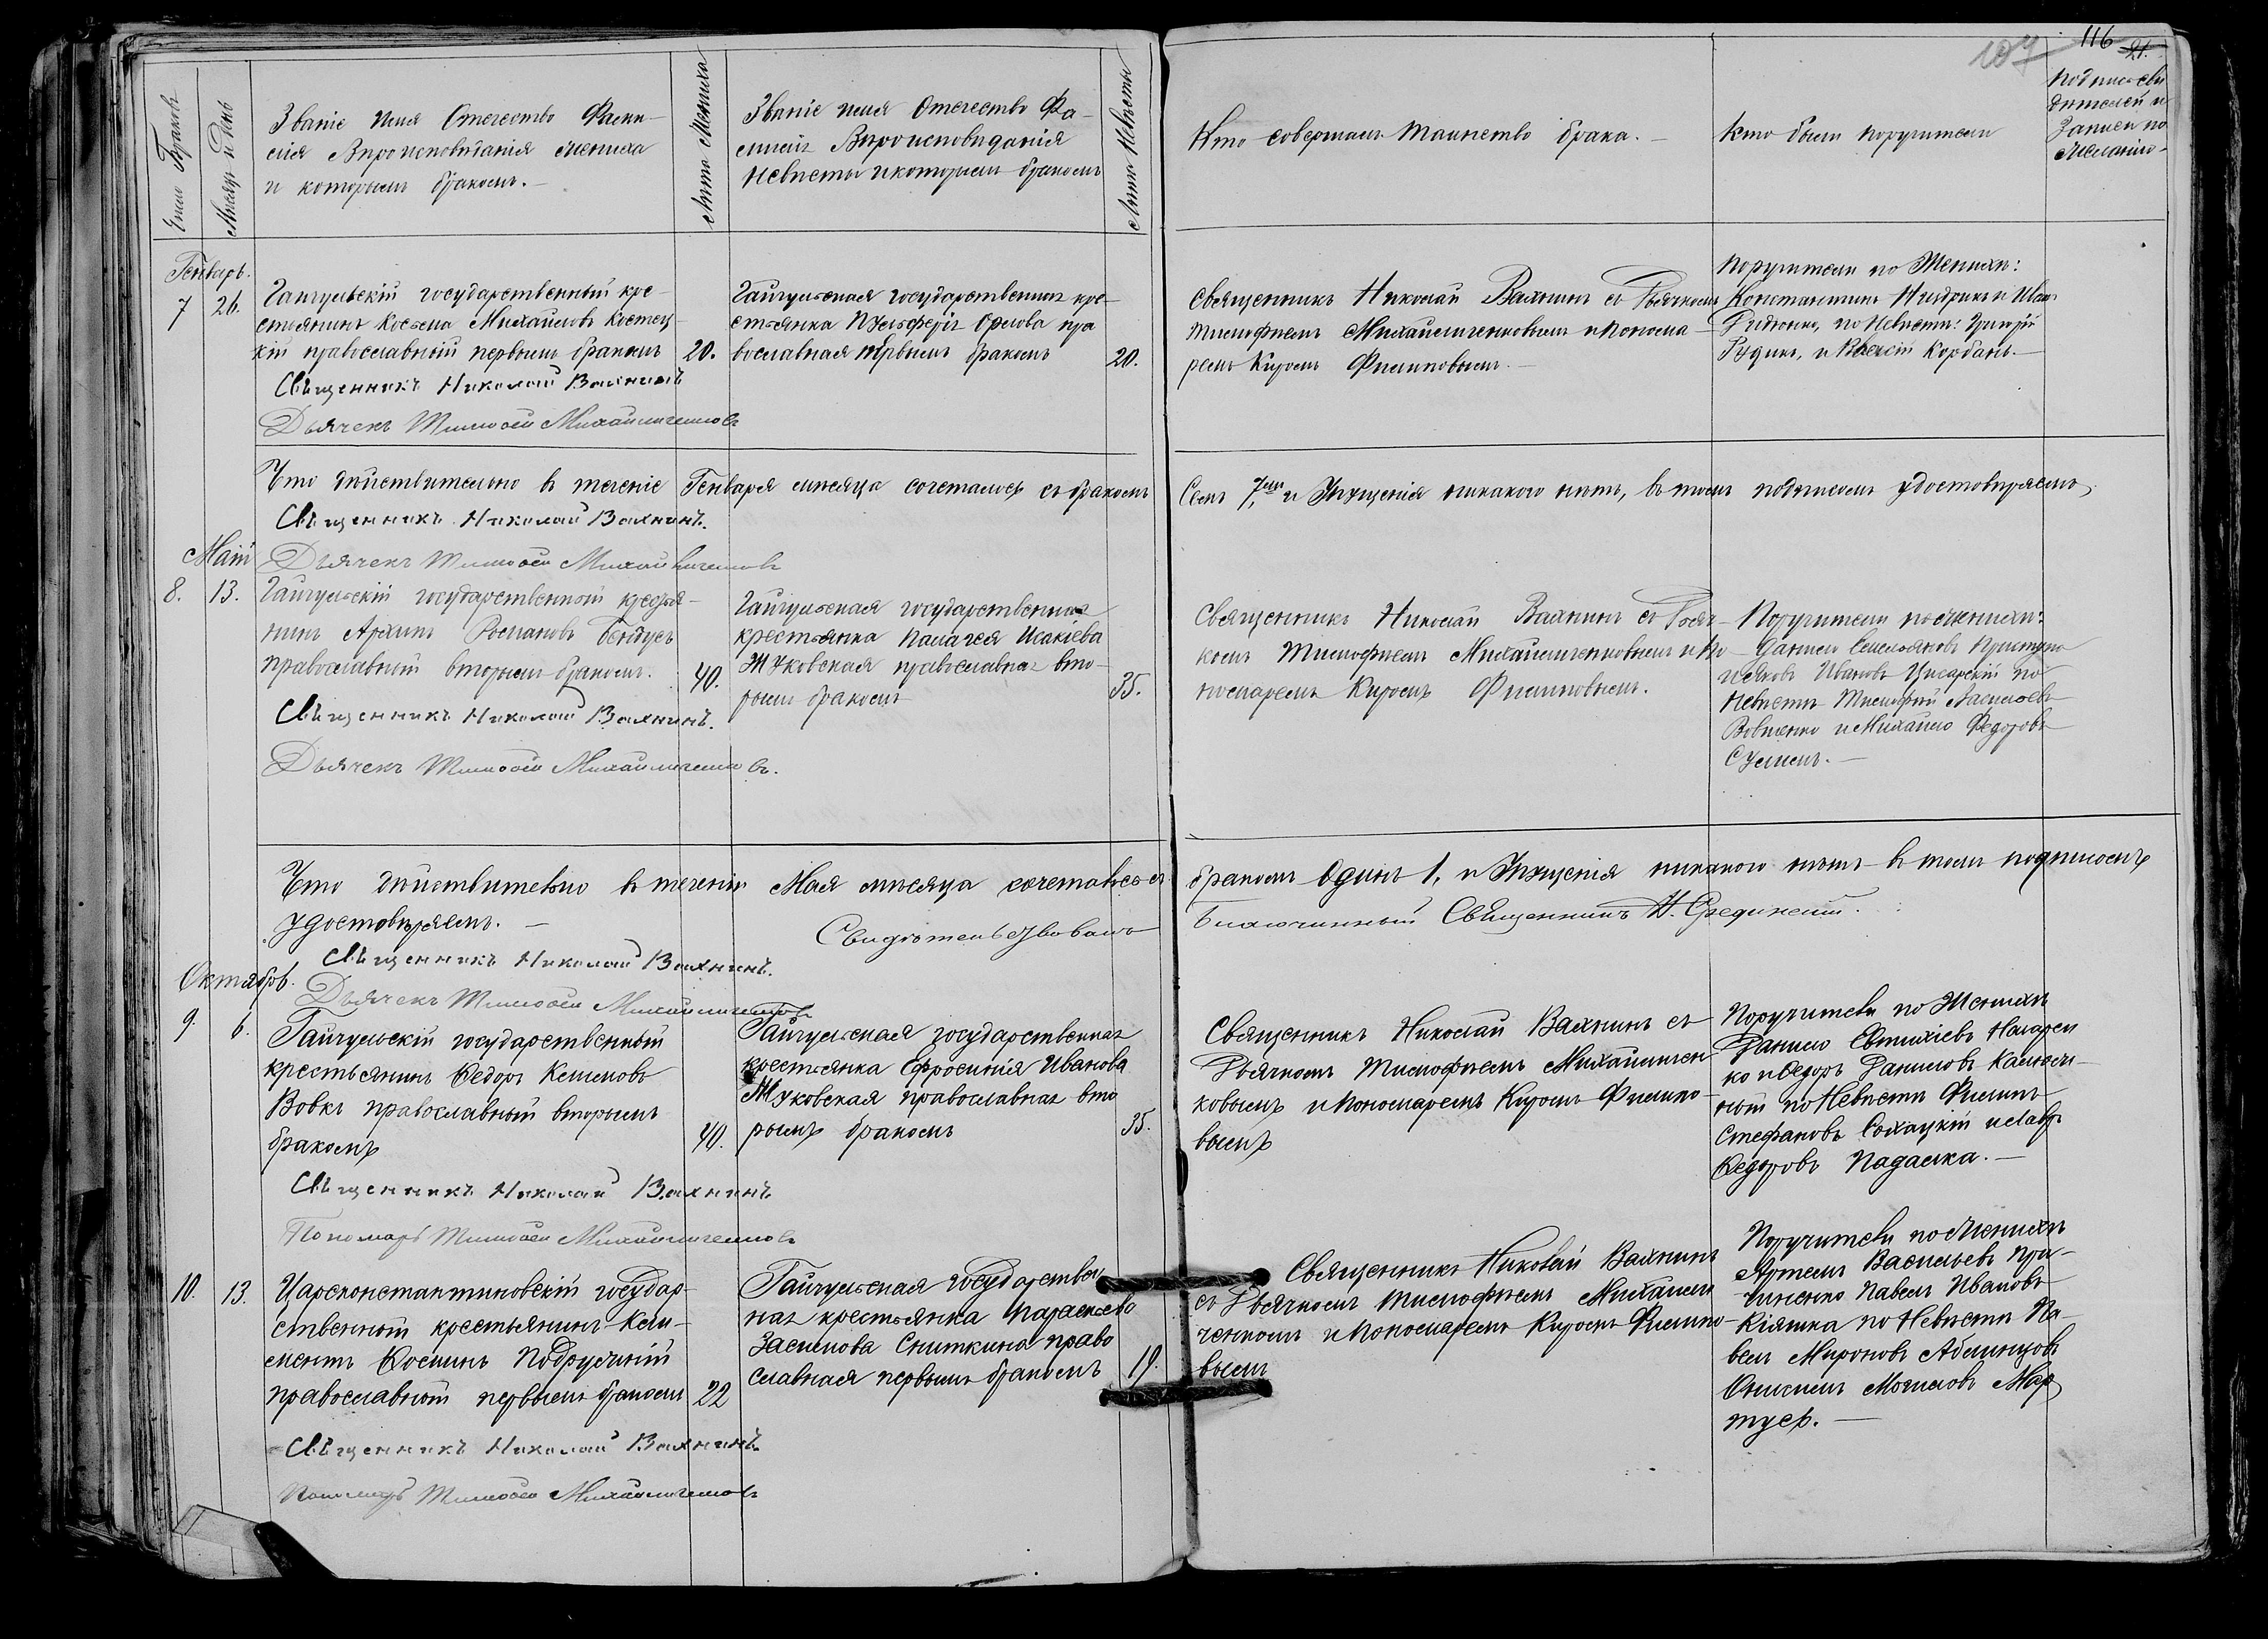 107 116 21.
Число Браковъ
Мѣсяцъ и День
Званіе Имя Отечество Фами-
лія Вѣроисповѣданія жениха
и которымъ бракомъ.
Лѣта Жениха
Званіе имя Отечество Фа-
милія Вѣроисповѣданія
Невѣсты и которымъ бракомъ
Лѣта Невѣсты
Кто совершалъ таинство брака.
Кто были поручители
Подписъ сви
дѣтелей и
Записи по
желанію
Генварь.
7 26.
Гайчульскій государственный кре-
стьянинъ Косьма Михайловъ Костец-
кій православный первымъ бракомъ
20.
Гайчульская государственная кре-
стьянка Орлова пра
вославная первымъ бракомъ
20.
Священникъ Николай Вахнинъ съ Дьячкомъ
Тимофѣемъ Михайличенковымъ и Понома-
ремъ Киромъ Филиповымъ.
Поручители по Женихѣ:
Константинъ и Иванъ
по Невѣстѣ: Григорій
Рудикъ, и Корбанъ.
Священникъ Николай Вахнинъ
Дьячекъ Тимофей Михайличенковъ
Что дѣйствительно въ теченіе Генваря мѣсяца сочеталось съ бракомъ
Семъ 7, и Упущенія никакого нѣтъ, въ томъ подписомъ удостовѣряемъ,
Священникъ Николай Вахнинъ.
Дьячекъ Тимофей Михайличенковъ
Май
8. 13.
Гайчульскій государственный крестья-
нинъ Архипъ Романовъ Бендусъ
православный вторымъ бракомъ.
40.
Гайчульская государственная
крестьянка Палагея Исакіева
Жуковская православная вто-
рымъ бракомъ
35.
Священникъ Николай Вахнинъ съ Дьяч-
комъ Тимофѣемъ Михайличенковымъ и По-
номаремъ Киромъ Филиповымъ.
Поручители по женихѣ:
Данило Емельяновъ Приступа
и Яковъ Ивановъ Цисарскій по
Невѣстѣ Тимофѣй
Вовченко и Михайло Федоровъ
Сушенъ.
Священникъ Николай Вахнинъ.
Дьячекъ Тимофей Михайличенковъ.
Что дѣйствительно въ теченіи Мая мѣсяца сочеталось съ
бракомъ Одинъ 1, и Упущенія никакого нѣтъ въ томъ подписомъ
удостовѣряемъ.
Свидѣтельствовалъ
Благочинный Священникъ Н. Срединскій.
Священникъ Николай Вахнинъ.
Дьячекъ Тимофей Михайличенковъ
Октябрь.
9. 6.
Гайчульскій государственный
крестьянинъ Федоръ
Вовкъ православный вторымъ
бракомъ
40.
Гайчульская государственная
крестьянка Ефросинія Иванова
Жуковская православная вто
рымъ бракомъ
35.
Священникъ Николай Вахнинъ съ
Дьячкомъ Тимофѣемъ Михайличен
ковымъ и Пономаремъ Киромъ Филипо-
вымъ
Поручители по Женихѣ
Данило Евтихіевъ Назарен
ко и Федоръ Даниловъ
по Невѣстѣ Филипъ
Стефановъ Сохацкій и Лавръ
Федоровъ Падалка.
Священникъ Николай Вахнинъ
Пономарь Тимофей Михайличенковъ
10. 13.
Цареконстантиновскій государ-
ственный крестьянинъ Кли-
ментъ Фоминъ Подрушній
православный первымъ бракомъ
22
Гайчульская государствен
ная крестьянка Параскева
Снѣткина право
славная первымъ бракомъ
19.
Священникъ Николай Вахнинъ
съ Дьячкомъ Тимофѣемъ Михайли
ченкомъ и Пономаремъ Киромъ Филипо-
вымъ
Поручители по Женихѣ
Артемъ Васильевъ При-
Павелъ Ивановъ
Кіяшка по Невѣстѣ Па-
велъ Мироновъ
Мар
тусь.
Священникъ Николай Вахнинъ
Пономарь Тимофей Михайличенковъ